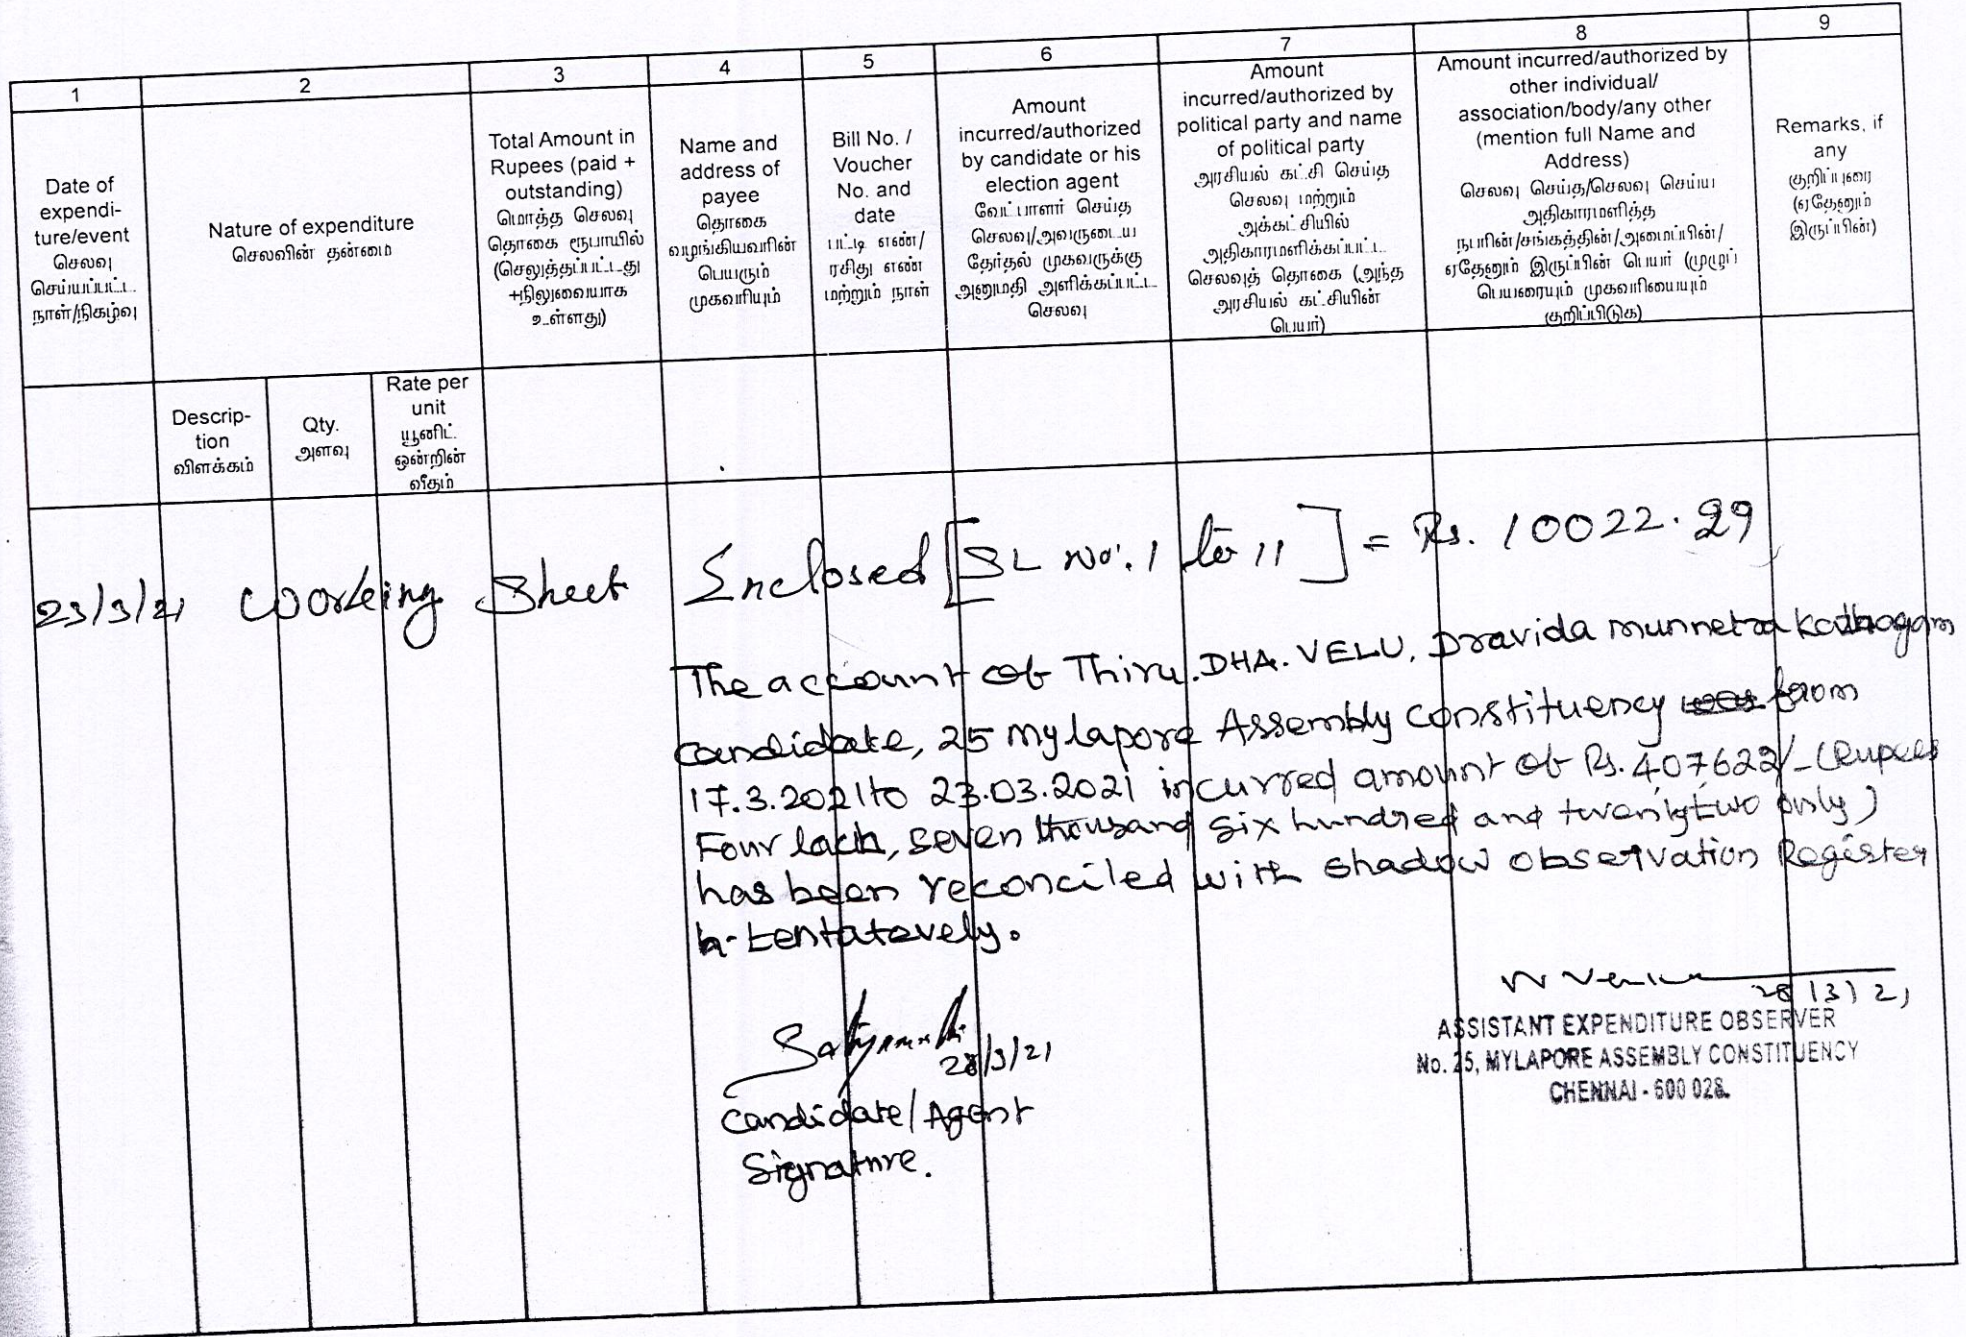 1 2 3 4 5 6 7 8 9
Date of
expendi-
ture/event
செலவு
செய்யப்பட்ட
நாள்/நிகழ்வு
Nature of expenditure
செலவின் தன்மை
Total Amount in
Rupees (paid +
outstanding)
மொத்த செலவு
தொகை ரூபாயில்
(செலுத்தப்பட்டது
+நிலுவையாக
உள்ளது)
Name and
address of
payee
தொகை
வழங்கியவரின்
பெயரும்
முகவரியும்
Bill No. /
Voucher
No. and
date
பட்டி எண்/
ரசிது எண்
மற்றும் நாள்
Amount
incurred/authorized
by candidate or his
election agent
வேட்பாளர் செய்த
செலவு/அவருடைய
தேர்தல் முகவருக்கு
அனுமதி அளிக்கப்பட்ட
செலவு
Amount
incurred/authorized by
political party and name
of political party
அரசியல் கட்சி செய்த
செலவு மற்றும்
அக்கட்சியில்
அதிகாரமளிக்கப்பட்ட
செலவுத் தொகை (அந்த
அரசியல் கட்சியின்
பெயர்)
Amount incurred/authorized by
other individual/
association/body/any other
(mention full Name and
Address)
செலவு செய்த/செலவு செய்ய
அதிகாரமளித்த
நபரின்/சங்கத்தின்/அமைப்பின்/
ஏதேனும் இருப்பின் பெயர் (முழுப்
பெயரையும் முகவரியையும்
குறிப்பிடுக)
Remarks, if
any
குறிப்புரை
(ஏதேனும்
இருப்பின்)
Descrip-
tion
விளக்கம்
Qty.
அளவு
Rate per
unit
யூனிட்
ஒன்றின்
வீதம்
23/3/21 Working Sheet Enclosed [SL No: 1 to 11] = Rs. 10022.29
The account of Thiru. DHA. VELU, Dravida munnetra Kazhagam
candidate, 25 Mylapore Assembly constituency from
17.3.2021 to 23.03.2021 incurred amount of Rs. 407622/- (Rupees
Four lach, seven thousand six hundred and twenty two only)
has been reconciled with shadow observation Register
tentatavely.
28/3/21
Candidate/Agent
Signature.
28/3/21
ASSISTANT EXPENDITURE OBSERVER
No. 25, MYLAPORE ASSEMBLY CONSTITUENCY
CHENNAI - 600 028.